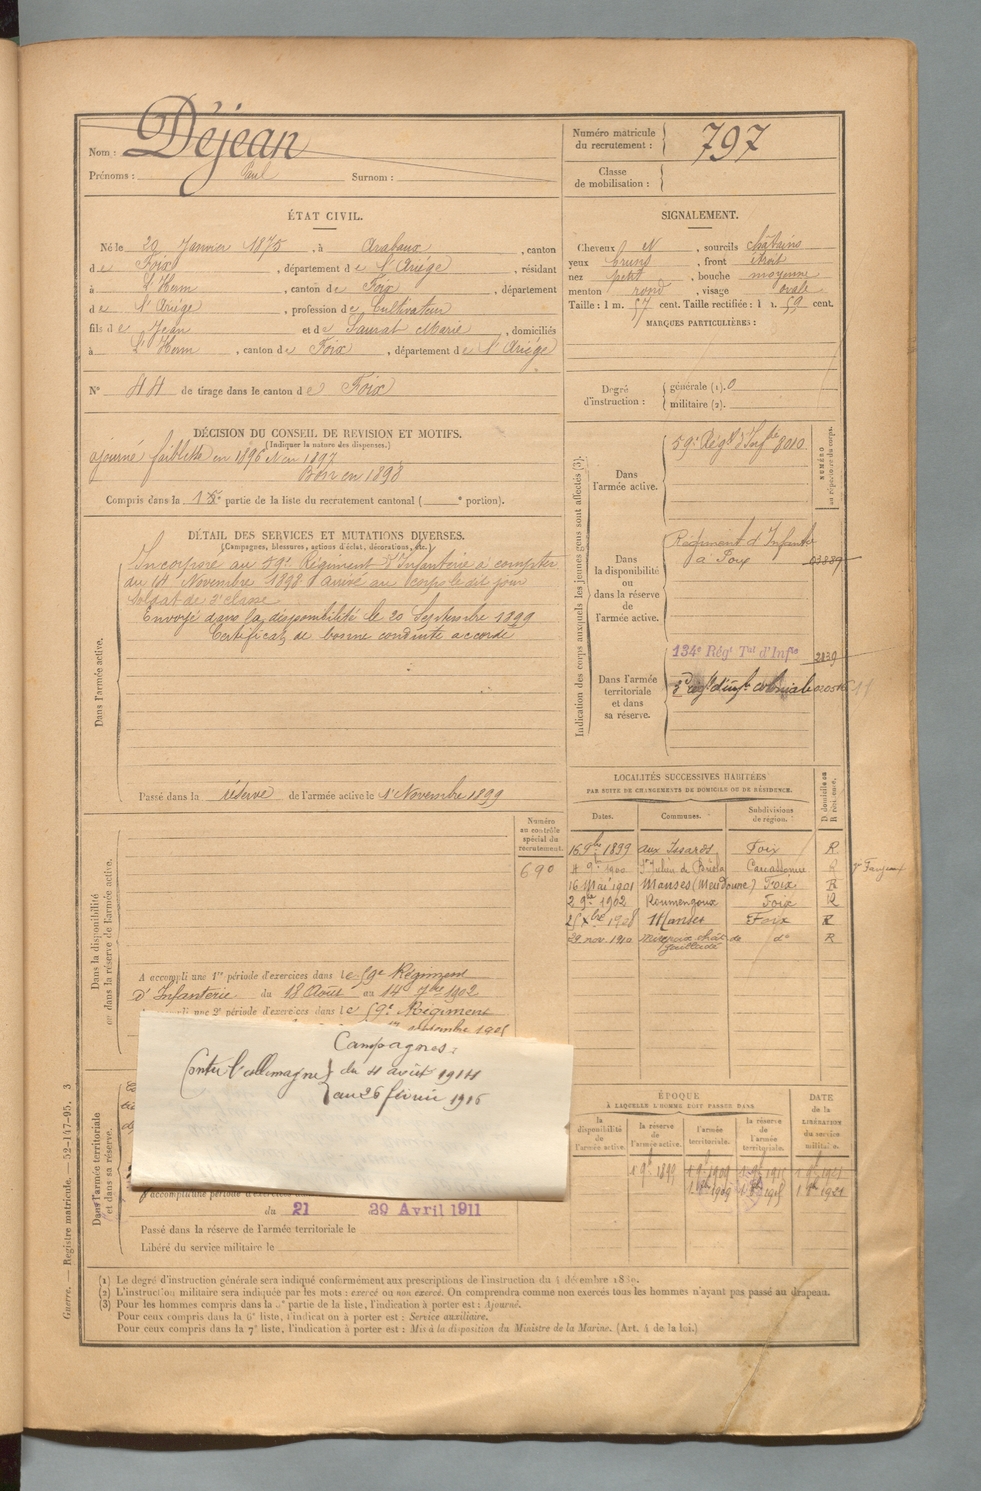 Nom : Déjean
Prénoms : Paul Surnom :
Numéro matricule du recrutement : 797
Classe de mobilisation :
ÉTAT CIVIL.
Né le 20 Janvier 1875, à Arabaux, canton
de Foix, département de l'Ariége, résidant
à L'Herm, canton de Foix, département
de l'Ariége, profession de Cultivateur
fils de Jean et de Saurat Marie, domiciliés
à L'Herm, canton de Foix, département de l'Ariége
N° 44 de tirage dans le canton de Foix
SIGNALEMENT.
Cheveux N, sourcils châtains
yeux bruns, front étroit
nez petit, bouche moyenne
menton rond, visage ovale
Taille : 1 m. 57 cent. Taille rectifiée : 1 m. 59 cent.
MARQUES PARTICULIÈRES :
Degré d'instruction : générale (1). 0
militaire (2).
DÉCISION DU CONSEIL DE REVISION ET MOTIFS.
(Indiquer la nature des dispenses.)
ajourné faiblesse en 1896 et en 1897
Bon en 1898
Compris dans la 1re partie de la liste du recrutement cantonal ( e portion).
DÉTAIL DES SERVICES ET MUTATIONS DIVERSES.
(Campagnes, blessures, actions d'éclat, décorations, etc.)
Dans l'armée active.
Incorporé au 59e Régiment d'Infanterie à compter
du 14 Novembre 1898 arrivé au corps le dit jour
soldat de 2e classe
Envoyé dans la disponibilité le 20 Septembre 1899
Certificat de bonne conduite accordé
Passé dans la réserve de l'armée active le 1er Novembre 1899
Indication des corps auxquels les jeunes gens sont affectés (3).
NUMÉRO au répertoire du corps.
Dans l'armée active.
59e Régt d'Infrie 8010
Dans la disponibilité ou dans la réserve de l'armée active.
Régiment d'Infanterie
à Foix 03889
Dans l'armée territoriale et dans sa réserve.
134e Régt Tal d'Infie 2839
3e régt d'infie coloniale
LOCALITÉS SUCCESSIVES HABITÉES
PAR SUITE DE CHANGEMENTS DE DOMICILE OU DE RÉSIDENCE.
Dates. Communes. Subdivisions de région. D. domicile ou R. résidence.
16 9bre 1899 aux Issards Foix R
4 9bre 1900 St Julien de Briola Carcassonne R
16 Mai 1901 Manses Foix R
2 9bre 1902 Roumengoux Foix R
25 Xbre 1908 Manses Foix R
29 nov. 1910 Mirepoix do R
Dans la disponibilité ou dans la réserve de l'armée active.
Numéro au contrôle spécial du recrutement.
690
A accompli une 1re période d'exercices dans le 59e Régiment
d'Infanterie du 18 Août au 14 7bre 1902
une 2e période d'exercices dans le 59e Régiment
septembre 1905
Campagnes :
Contre l'allemagne du 4 août 1914
au 26 février 1916
Dans l'armée territoriale et dans sa réserve.
A accompli une période d'exercices
du 21 29 Avril 1911
Passé dans la réserve de l'armée territoriale le
Libéré du service militaire le
ÉPOQUE
À LAQUELLE L'HOMME DOIT PASSER DANS
la disponibilité de l'armée active. la réserve de l'armée active. l'armée territoriale. la réserve de l'armée territoriale.
DATE de la LIBÉRATION du service militaire.
1 9bre 1899 1 9bre 1909
(1) Le degré d'instruction générale sera indiqué conformément aux prescriptions de l'instruction du 4 décembre 1889.
(2) L'instruction militaire sera indiquée par les mots : exercé ou non exercé. On comprendra comme non exercés tous les hommes n'ayant pas passé au drapeau.
(3) Pour les hommes compris dans la 5e partie de la liste, l'indication à porter est : Ajourné.
Pour ceux compris dans la 6e liste, l'indication à porter est : Service auxiliaire.
Pour ceux compris dans la 7e liste, l'indication à porter est : Mis à la disposition du Ministre de la Marine. (Art. 4 de la loi.)
Guerre. — Registre matricule. — 52-147-95. 3